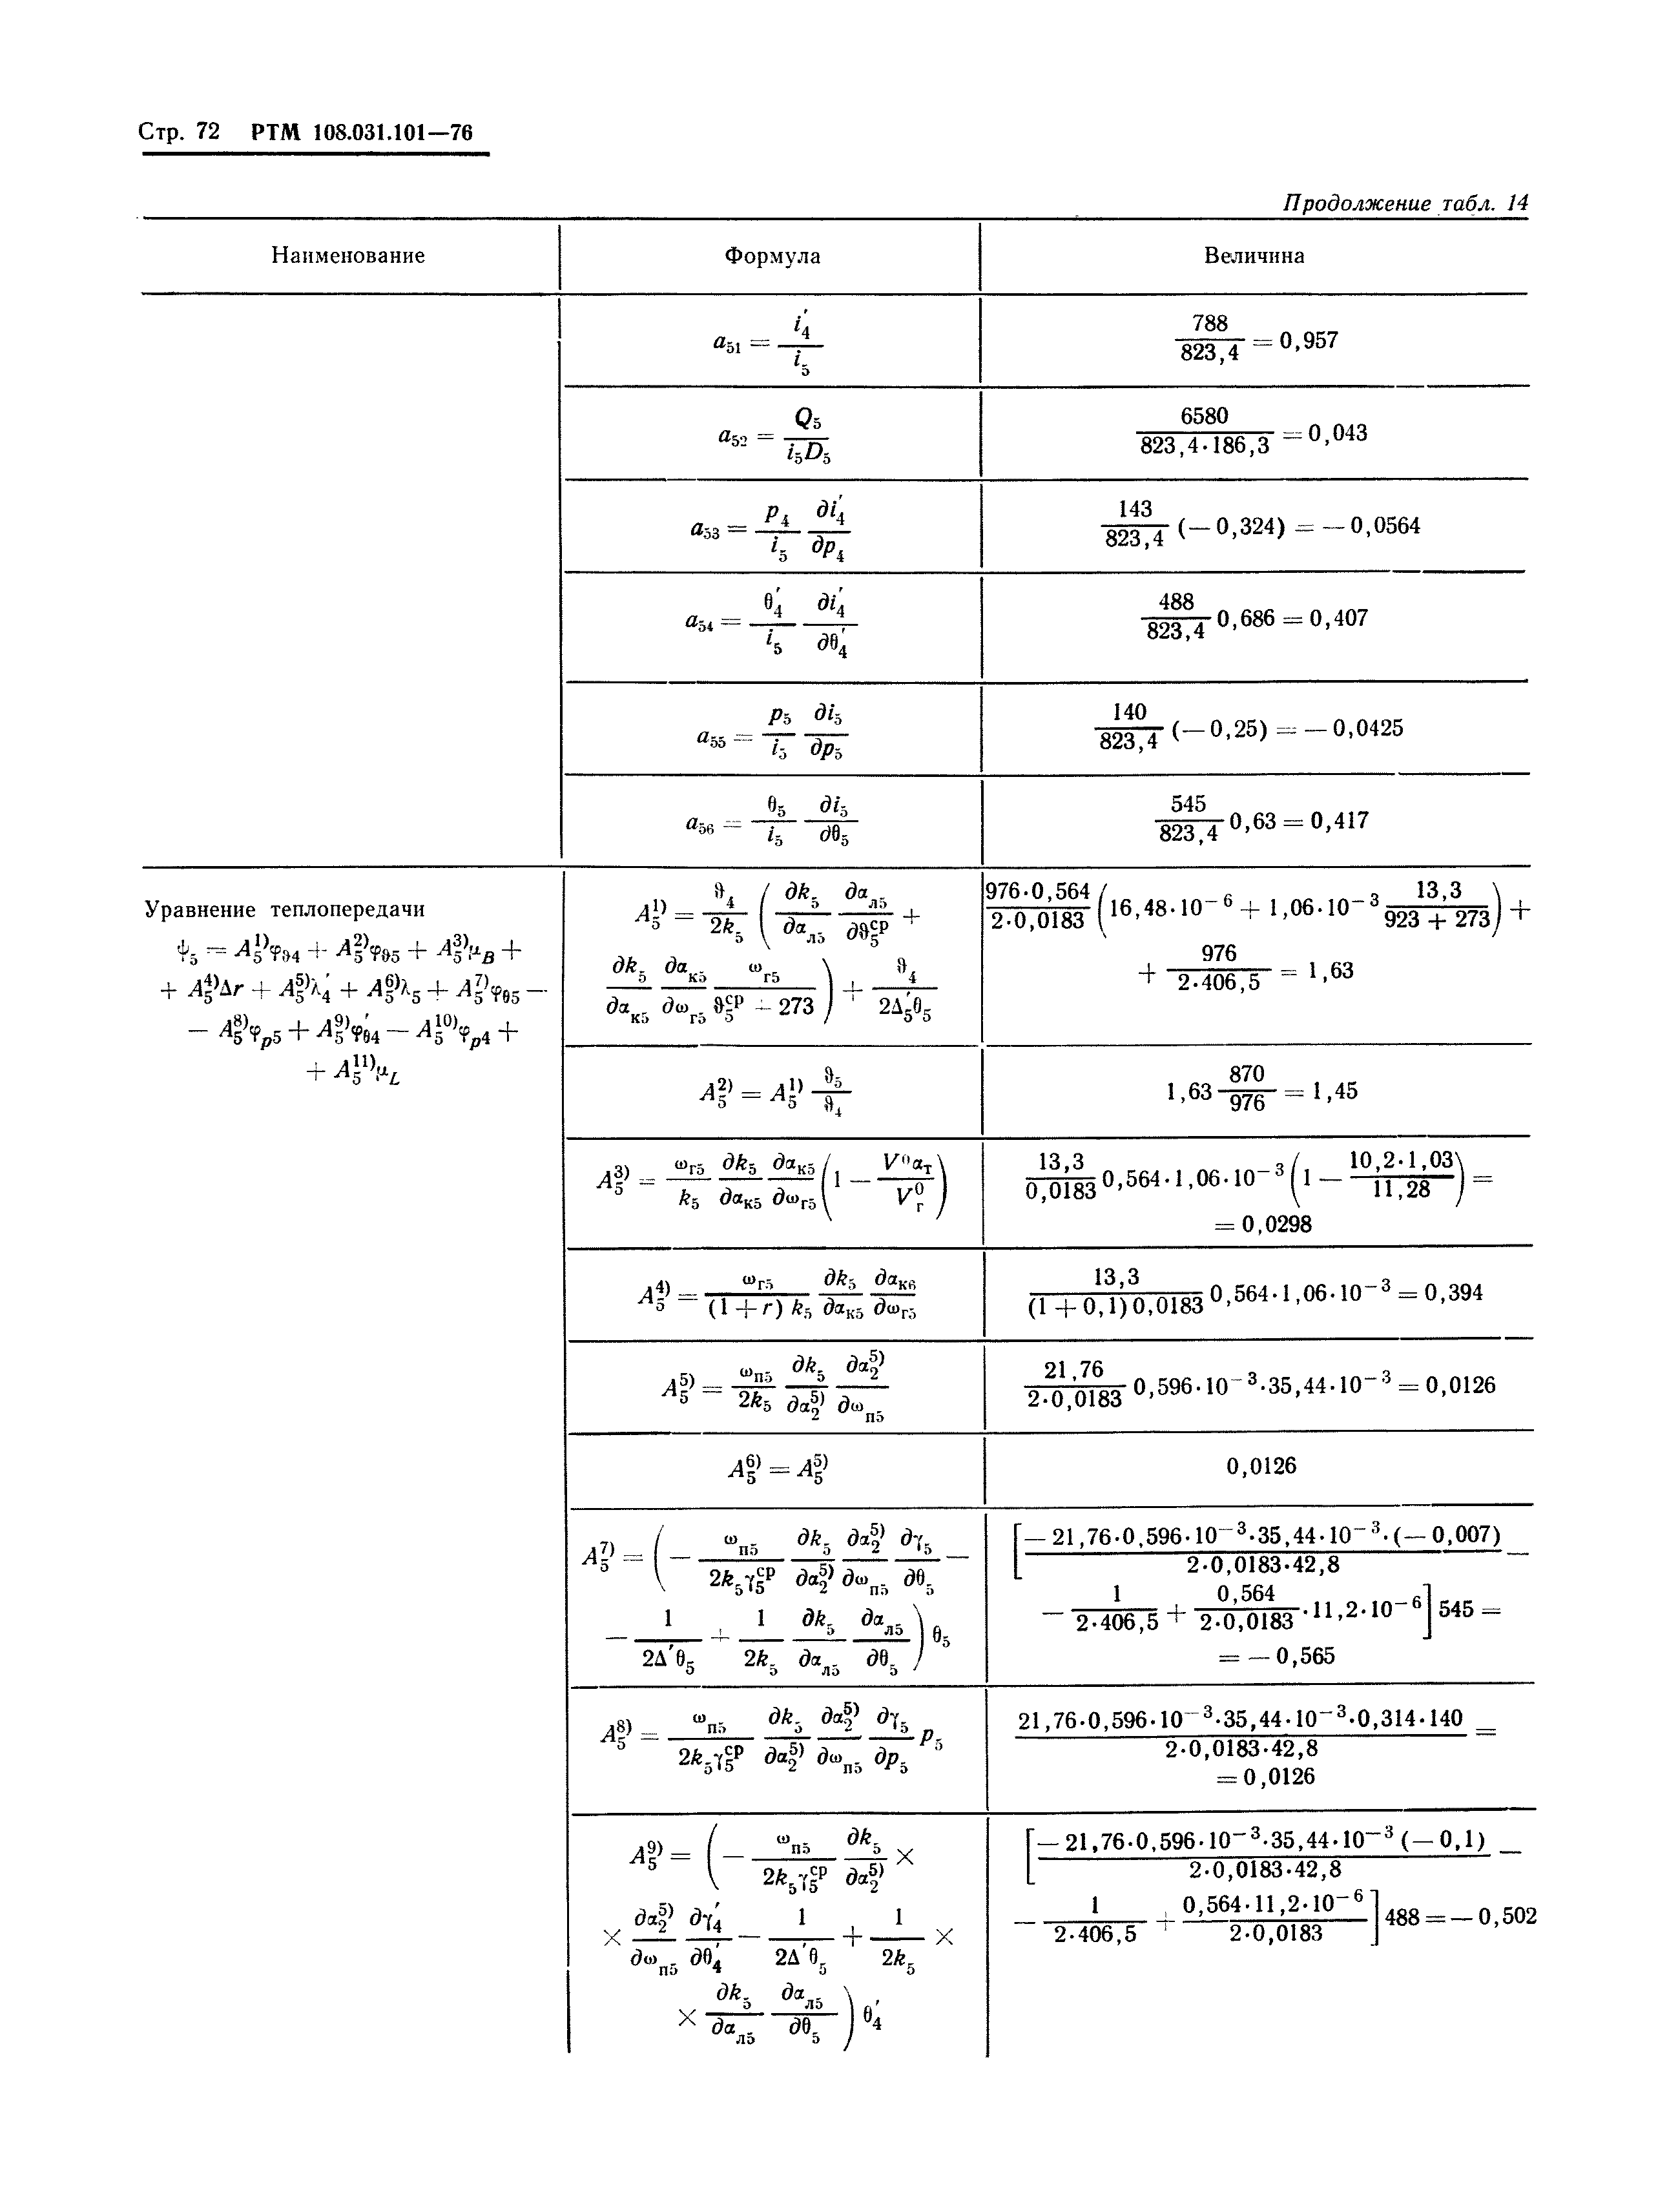 Стр. 72 РТМ 108.031.101—76
Продолжение табл. 14
Наименование Формула Величина
a₅₁ = i′₄ / i₅
788 / 823,4 = 0,957
a₅₂ = Q₅ / i₅D₅
6580 / 823,4·186,3 = 0,043
a₅₃ = p₄ / i₅ ∂i′₄ / ∂p₄
143 / 823,4 (— 0,324) = — 0,0564
a₅₄ = θ′₄ / i₅ ∂i′₄ / ∂θ′₄
488 / 823,4 0,686 = 0,407
a₅₅ = p₅ / i₅ ∂i₅ / ∂p₅
140 / 823,4 (— 0,25) = — 0,0425
a₅₆ = θ₅ / i₅ ∂i₅ / ∂θ₅
545 / 823,4 0,63 = 0,417
Уравнение теплопередачи
ψ₅ = A₅¹⁾φ_ϑ4 + A₅²⁾φ_ϑ5 + A₅³⁾μ_B +
+ A₅⁴⁾Δr + A₅⁵⁾λ′₄ + A₅⁶⁾λ₅ + A₅⁷⁾φ_θ5 —
— A₅⁸⁾φ_p5 + A₅⁹⁾φ′_θ4 — A₅¹⁰⁾φ_p4 +
+ A₅¹¹⁾μ_L
A₅¹⁾ = ϑ₄ / 2k₅ ( ∂k₅ / ∂α_л5 ∂α_л5 / ∂ϑ₅^ср +
∂k₅ / ∂α_к5 ∂α_к5 / ∂ω_г5 ω_г5 / ϑ₅^ср + 273 ) + ϑ₄ / 2Δ′₅θ₅
976·0,564 / 2·0,0183 (16,48·10⁻⁶ + 1,06·10⁻³ 13,3 / 923 + 273) +
+ 976 / 2·406,5 = 1,63
A₅²⁾ = A₅¹⁾ ϑ₅ / ϑ₄
1,63 870 / 976 = 1,45
A₅³⁾ = ω_г5 / k₅ ∂k₅ / ∂α_к5 ∂α_к5 / ∂ω_г5 (1 — V⁰α_т / V_г⁰)
13,3 / 0,0183 0,564·1,06·10⁻³ (1 — 10,2·1,03 / 11,28) =
= 0,0298
A₅⁴⁾ = ω_г5 / (1 + r) k₅ ∂k₅ / ∂α_к5 ∂α_к6 / ∂ω_г5
13,3 / (1 + 0,1) 0,0183 0,564·1,06·10⁻³ = 0,394
A₅⁵⁾ = ω_п5 / 2k₅ ∂k₅ / ∂α₂⁵⁾ ∂α₂⁵⁾ / ∂ω_п5
21,76 / 2·0,0183 0,596·10⁻³·35,44·10⁻³ = 0,0126
A₅⁶⁾ = A₅⁵⁾
0,0126
A₅⁷⁾ = ( — ω_п5 / 2k₅γ₅^ср ∂k₅ / ∂α₂⁵⁾ ∂α₂⁵⁾ / ∂ω_п5 ∂γ₅ / ∂θ₅ —
— 1 / 2Δ′θ₅ + 1 / 2k₅ ∂k₅ / ∂α_л5 ∂α_л5 / ∂θ₅ ) θ₅
[ — 21,76·0,596·10⁻³·35,44·10⁻³·(— 0,007) / 2·0,0183·42,8 —
— 1 / 2·406,5 + 0,564 / 2·0,0183 ·11,2·10⁻⁶ ] 545 =
= — 0,565
A₅⁸⁾ = ω_п5 / 2k₅γ₅^ср ∂k₅ / ∂α₂⁵⁾ ∂α₂⁵⁾ / ∂ω_п5 ∂γ₅ / ∂p₅ p₅
21,76·0,596·10⁻³·35,44·10⁻³·0,314·140 / 2·0,0183·42,8 =
= 0,0126
A₅⁹⁾ = ( — ω_п5 / 2k₅γ₅^ср ∂k₅ / ∂α₂⁵⁾ ×
× ∂α₂⁵⁾ / ∂ω_п5 ∂γ′₄ / ∂θ′₄ — 1 / 2Δ′θ₅ + 1 / 2k₅ ×
× ∂k₅ / ∂α_л5 ∂α_л5 / ∂θ₅ ) θ′₄
[ — 21,76·0,596·10⁻³·35,44·10⁻³ (— 0,1) / 2·0,0183·42,8 —
— 1 / 2·406,5 + 0,564·11,2·10⁻⁶ / 2·0,0183 ] 488 = — 0,502